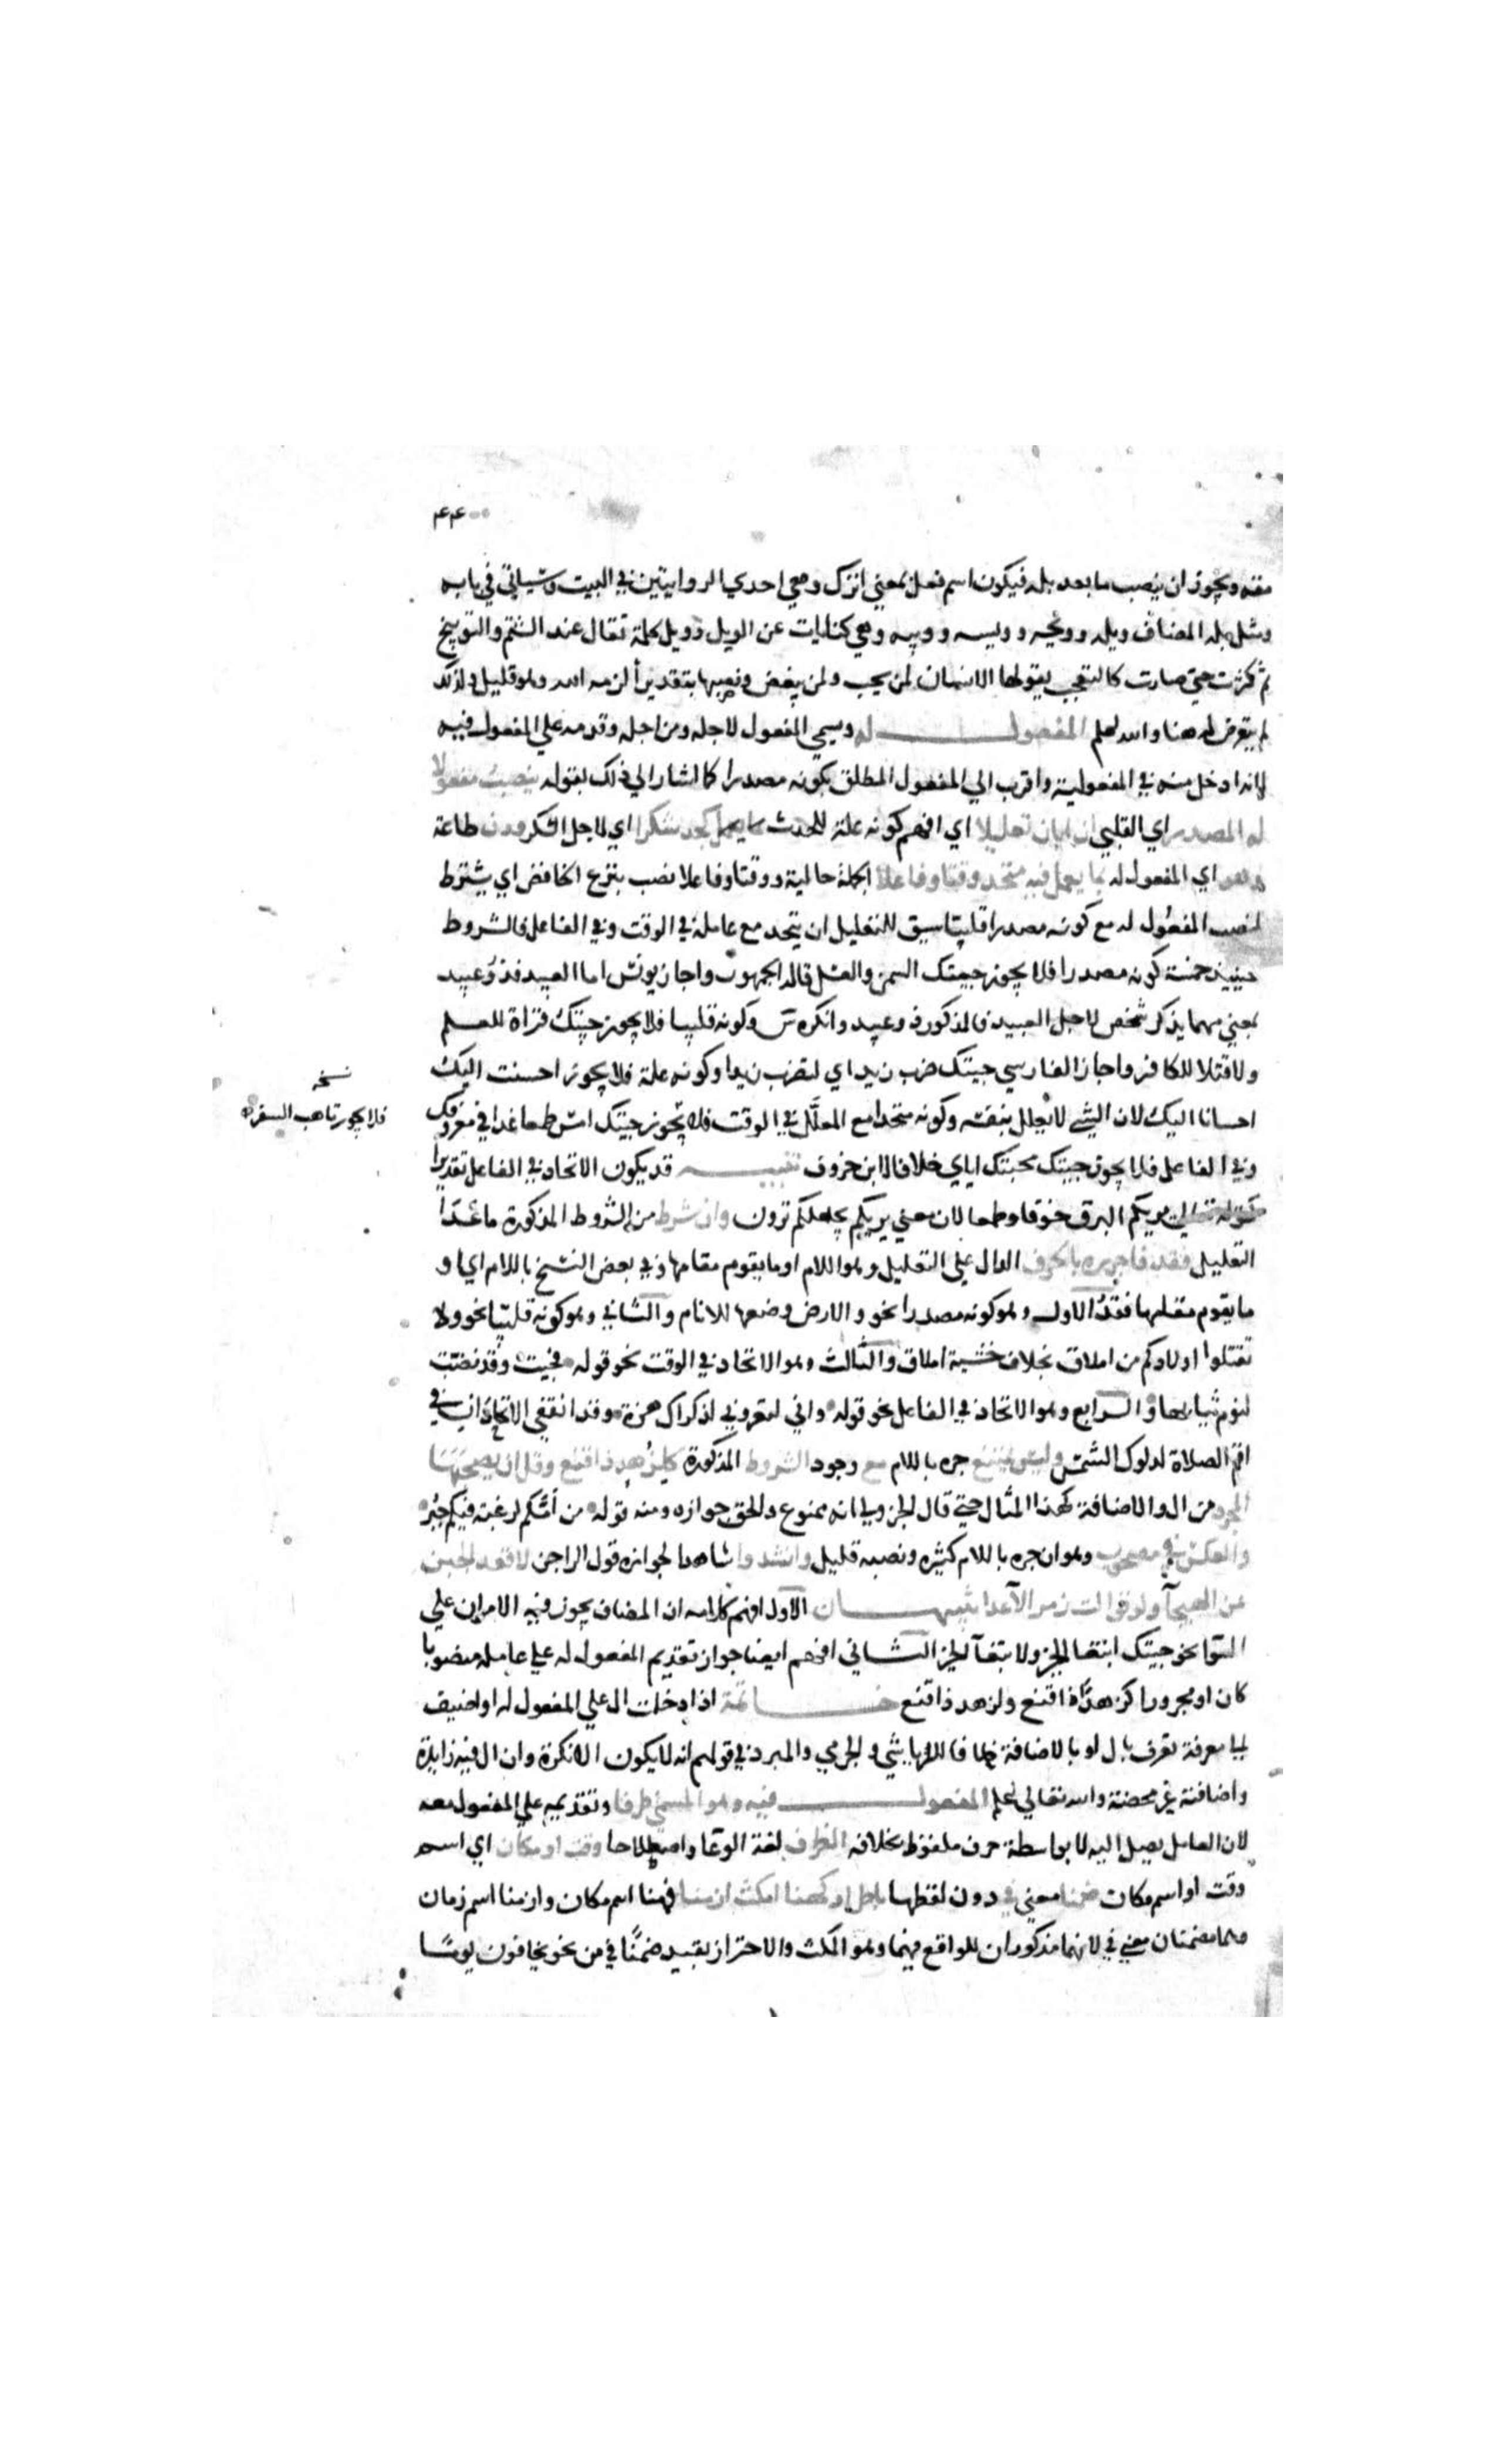 ٤٤
منه ويجوز ان ينصب ما بعد بله فيكون اسم فعل بمعني اترك وهي احدي الروايتين في البيت وسياتي في بابه
ومثل بله المضاف ويله وويحه وويسه وويبه وهي كنايات عن الويل وويل كلمة تقال عند الشتم والتوبيخ
ثم كثرت حتي صارت كالتعجب يقولها الانسان لمن يحب ولمن يبغض ونصبها بتقدير ألزمه الله وهو قليل ولذلك
لم يتعرض له هنا والله اعلم المفعول له ويسمي المفعول لاجله ومن اجله وقدمه علي المفعول فيه
لانه ادخل منه في المفعولية واقرب الي المفعول المطلق بكونه مصدرا كما اشار الي ذلك بقوله ينصب مفعولا
له المصدر اي القلبي ان ابان تعليلا اي افهم كونه علة للحدث كجد شكرا اي لاجل الشكر ودن طاعة
وهو اي المفعول له بما يعمل فيه متحد وقتا وفاعلا الجملة حالية ووقتا وفاعلا نصب بنزع الخافض اي يشترط
لنصب المفعول له مع كونه مصدرا قلبيا سيق للتعليل ان يتحد مع عامله في الوقت وفي الفاعل فالشروط
حينيذ خمسة كونه مصدرا فلا يجوز جيتك السمن والعسل قاله الجمهور واجاز يونس اما العبيد فذو عبيد
بمعني مهما يذكر شخص لاجل العبيد فالمذكور ذو عبيد وانكره س وكونه قلبيا فلا يجوز جيتك قراة للعلم
ولا قتلا للكافر واجاز الفارسي جيتك ضرب زيد اي لتضرب زيدا وكونه علة فلا يجوز احسنت اليك
احسانا اليك لان الشي لا يعلل بنفسه وكونه متحدا مع المعلَّل في الوقت فلا يجوز جيتك امس طمعا غدا في معروفك
وفي الفاعل فلا يجوز جيتك محبتك اياي خلافا لابن خروف تنبيه قد يكون الاتحاد في الفاعل تقديرا
كقوله تعالي يريكم البرق خوفا وطمعا لان معني يريكم يجعلكم ترون وان شرط من الشروط المذكورة ما عدا
التعليل فقد فاجرره بالحرف الدال علي التعليل وهو اللام او ما يقوم مقامها وفي بعض النسخ باللام اي او
ما يقوم مقامها ففقد الاول وهو كونه مصدرا نحو والارض وضعها للانام والثاني وهو كونه قلبيا نحو ولا
تقتلوا اولادكم من املاق بخلاف خشية املاق والثالث وهو الاتحاد في الوقت نحو قوله فجيت وقد نضت
لنوم ثيابها والرابع وهو الاتحاد في الفاعل نحو قوله واني لتعروني لذكراك هزة وقد انتفي الاتحادان في
اقم الصلاة لدلوك الشمس وليس يمتنع جره باللام مع وجود الشروط المذكورة كلزهد ذا اقنع وقل ان يصحبها
المجرد من ال والاضافة كهذا المثال حتي قال الجزولي انه ممنوع والحق جوازه ومنه قوله من أمّكم لرغبة فيكم جُبر
والعكس في مصحوب وهو ان جره باللام كثير ونصبه قليل وانشدوا شاهدا لجوازه قول الراجز لا اقعد الجبن
عن الهيجآ ولو توالت زمر الاعدا تنبيهان الاول افهم كلامه ان المضاف يجوز فيه الامران علي
السوا نحو جيتك ابتغا الخير ولابتغآ الخير الثاني افهم ايضا جواز تقديم المفعول له علي عامله منصوبا
كان او مجرورا كزهدًا ذا اقنع ولزهد ذا اقنع خاتمة اذا دخلت ال علي المفعول له او اضيف
الي معرفة تعرف بال او بالاضافة خلافا للرياشي والجرمي والمبرد في قولهم انه لا يكون الا نكرة وان ال فيه زايدة
واضافته غير محضة والله تعالي اعلم المفعول فيه وهو المسمي ظرفا وتقديمه علي المفعول معه
لان العامل يصل اليه لا بواسطة حرف ملفوظ بخلافه الظرف لغة الوعا واصطلاحا وقت او مكان اي اسم
وقت او اسم مكان ضمنا معني في دون لفظها باطراد كهنا امكث ازمنا فهنا اسم مكان وازمنا اسم زمان
وهما مضمنان معني في لانهما مذكوران للواقع فيهما وهو المكث والاحتراز بقيد ضمنًا في من نحو يخافون يومًا
نسخه
فلا يجوز تاهب السفر